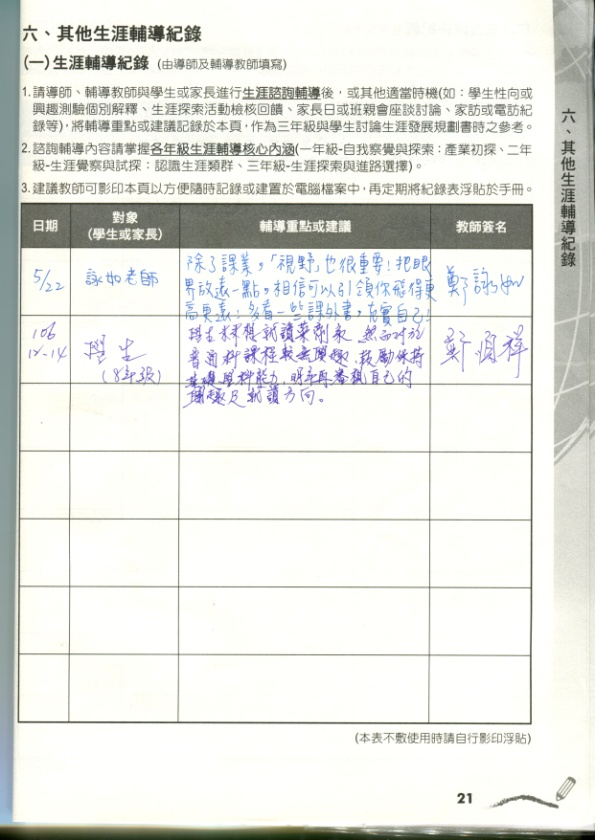 六、其他生涯輔導紀錄
(一)生涯輔導紀錄 (由導師及輔導教師填寫)
1.請導師、輔導教師與學生或家長進行生涯諮詢輔導後，或其他適當時機(如：學生性向或
興趣測驗個別解釋、生涯探索活動檢核回饋、家長日或班親會座談討論、家訪或電訪紀
錄等)，將輔導重點或建議記錄於本頁，作為三年級與學生討論生涯發展規劃書時之參考。
2.諮詢輔導內容請掌握各年級生涯輔導核心內涵(一年級-自我察覺與探索：產業初探、二年
級-生涯覺察與試探：認識生涯類群、三年級-生涯探索與進路選擇)。
3.建議教師可影印本頁以方便隨時記錄或建置於電腦檔案中，再定期將紀錄表浮貼於手冊。
日期
對象
(學生或家長)
輔導重點或建議
教師簽名
5/22
詠如老師
除了課業，「視野」也很重要！把眼
界放遠一點，相信可以引領你飛得更
高更遠！多看一些課外書，充實自己！
鄭詠如
106
12-14
學生
(8年級)
學生未來想就讀藥劑系，然而對於
普通科課程較無興趣，鼓勵保持
基礎學科能力，明年再審視自己的
興趣及就讀方向。
(本表不敷使用時請自行影印浮貼)
21
六、其他生涯輔導紀錄